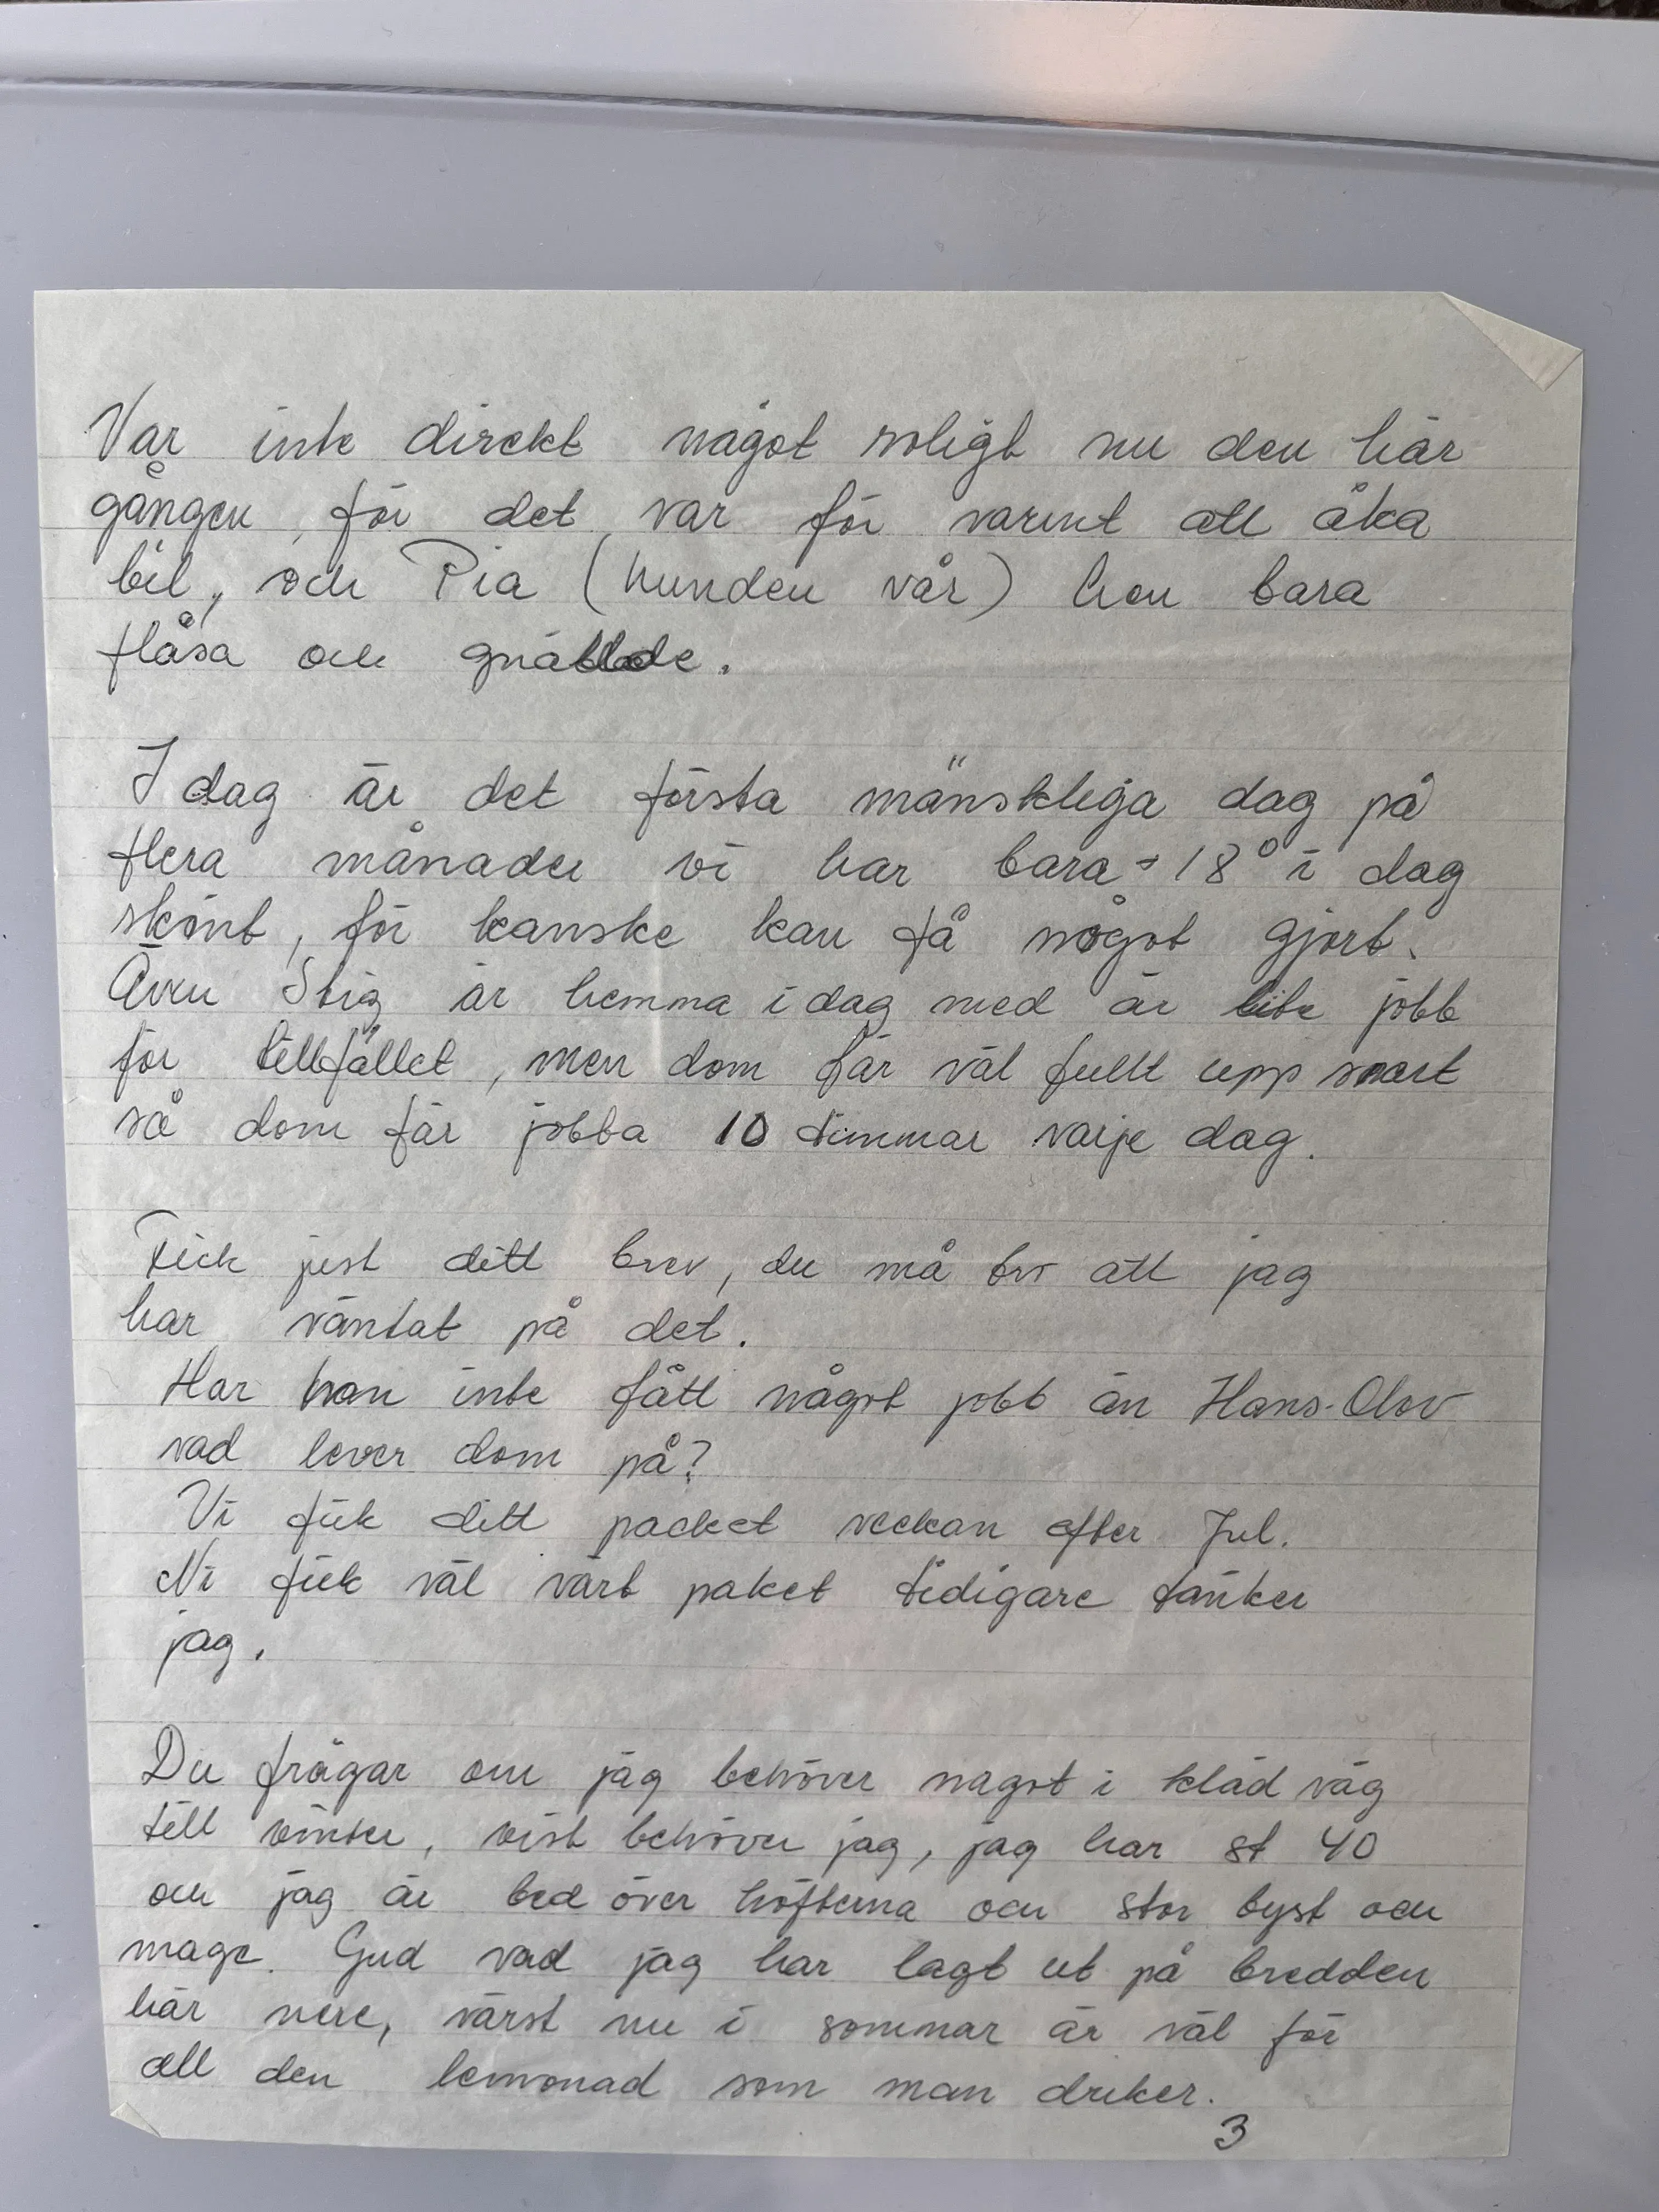 Var inte direkt något roligt nu den här
gången, för det var för varmt att åka
bil, och Pia (hunden vår) hon bara
flåsa och gnällde.
I dag är det första mänskliga dag på
flera månader vi har bara + 18° i dag
skönt, för kanske kan få något gjort.
Även Stig är hemma i dag med är lite jobb
för tillfället, men dom får väl fullt upp snart
så dom får jobba 10 timmar varje dag.
Fick just ditt brev, du må tro att jag
har väntat på det.
Har han inte fått något jobb än Hans-Olov
vad lever dom på?
Vi fick ditt packet veckan efter Jul.
Ni fick väl vårt paket tidigare tänker
jag.
Du frågar om jag behöver något i kläd väg
till vinter, visst behöver jag, jag har st 40
och jag är bred över höfterna och stor byst och
mage. Gud vad jag har lagt ut på bredden
här nere, värst nu i sommar är väl för
all den lemonad som man druker.
3